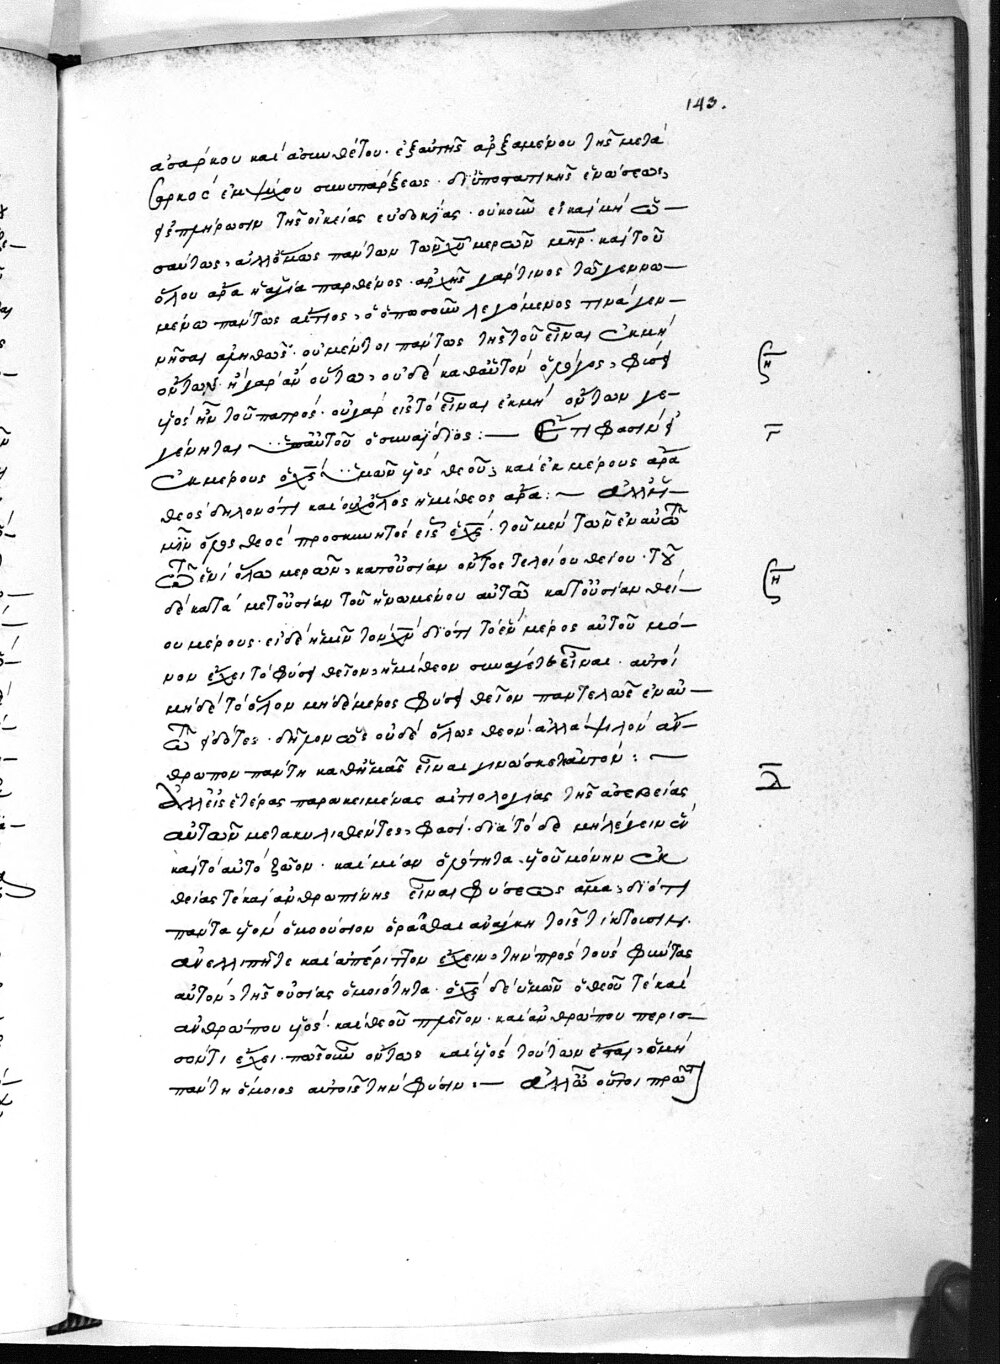 143.
ἀσάρκου καὶ ἀσυνθέτου. ἐξ αὐτῆς ἀρξαμένου τῆς μετὰ
σαρκὸς ἐμψύχου συνυπάρξεως. δι' ὑποστατικῆς ἑνώσεως,
πλήρωσιν τῆς οἰκείας εὐδοκίας. οὐκοῦν εἰ καὶ μὴ ὡ-
σαύτως, ἀλλ' ὅμως πάντων τῶν χῦ μερῶν μηρ. καὶ τοῦ
ὅλου ἄρα ἡ ἁγία παρθένος. ἀρχῆς γάρ τινος τῷ γεννω-
μένω πάντως αἴτιος, ὁ ὁπωσοῦν λεγόμενος τινὰ γεν-
νῆσαι ἀληθῶς. οὐ μέν τοι πάντως τῆς τοῦ εἶναι ἐκ μὴ
ὄντων. ἢ γὰρ ἂν οὕτως, οὐδὲ καθ' αὑτὸν ὁ λόγος, φύσει
υἱὸς ἦν τοῦ πατρός. οὐ γὰρ εἰς τὸ εἶναι ἐκ μὴ ὄντων γε-
γένηται αὐτοῦ ὁ συναΐδιος: — Ἔτι φασὶν
ἐκ μέρους ὁ χς ὑμῶν υἱὸς θεοῦ, καὶ ἐκ μέρους ἄρα
θεὸς δηλονότι καὶ οὐχ ὅλος ἡμίθεος ἄρα: — ἀλλ'
μὴν ὅλος θεὸς προσκυνητὸς εἷς ὁ χς. τοῦ μὲν τῶν ἐν αὐτῶ
τῶ ἑνὶ ὅλω μερῶν, κατ' οὐσίαν ὄντος τελείου θείου. τοῦ
δὲ κατὰ μετουσίαν τοῦ ἡνωμένου αὐτῶ κατ' οὐσίαν θεί-
ου μέρους. εἰ δὲ ἡμῖν τὸν χν διότι τὸ ἓν μέρος αὐτοῦ μό-
νον ἔχει τὸ φύσει θεῖον, ἡμίθεον συνάγετε εἶναι. αὐτοὶ
μηδὲ τὸ ὅλον μηδὲ μέρος φύσει θεῖον παντελῶς ἐν αὐ-
τῶ εἰδότες. δῆλον ὡς οὐδὲ ὅλως θεὸν. ἀλλὰ ψιλὸν ἄν-
θρωπον πάντη καθ' ἡμᾶς εἶναι γινώσκετ' αὐτόν: —
Ἀλλ' εἰς ἑτέρας παρακειμένας αἰτιολογίας τῆς ἀσεβείας
αὐτῶν μετακυλισθέντες, φασί. διὰ τὸ δὲ μὴ λέγειν ἓν
καὶ τὸ αὐτὸ ζῶον. καὶ μίαν ὁλότητα υἱοῦ μόνην ἐκ
θείας τὲ καὶ ἀνθρωπίνης εἶναι φύσεως ἅμα, διότι
πάντα υἱὸν ὁμοούσιον ὁρᾶσθαι ἀνάγκη τοῖς τίκτουσιν.
ἀνελλιπῆ τε καὶ ἀπέριττον ἔχειν, τὴν πρὸς τοὺς φύντας
αὐτὸν, τῆς οὐσίας ὁμοιότητα. ὁ χς δὲ ὑμῶν ὁ θεοῦ τὲ καὶ
ἀνθρώπου υἱός. καὶ θεοῦ πλεῖον. καὶ ἀνθρώπου περισ-
σόν τι ἔχει. πῶς οὖν ὄντως καὶ υἱὸς τούτων ἔσται, ὁ μὴ
πάντη ὅμοιος αὐτοῖς τὴν φύσιν: — ἀλλ' ὦ οὗτοι πρῶτ